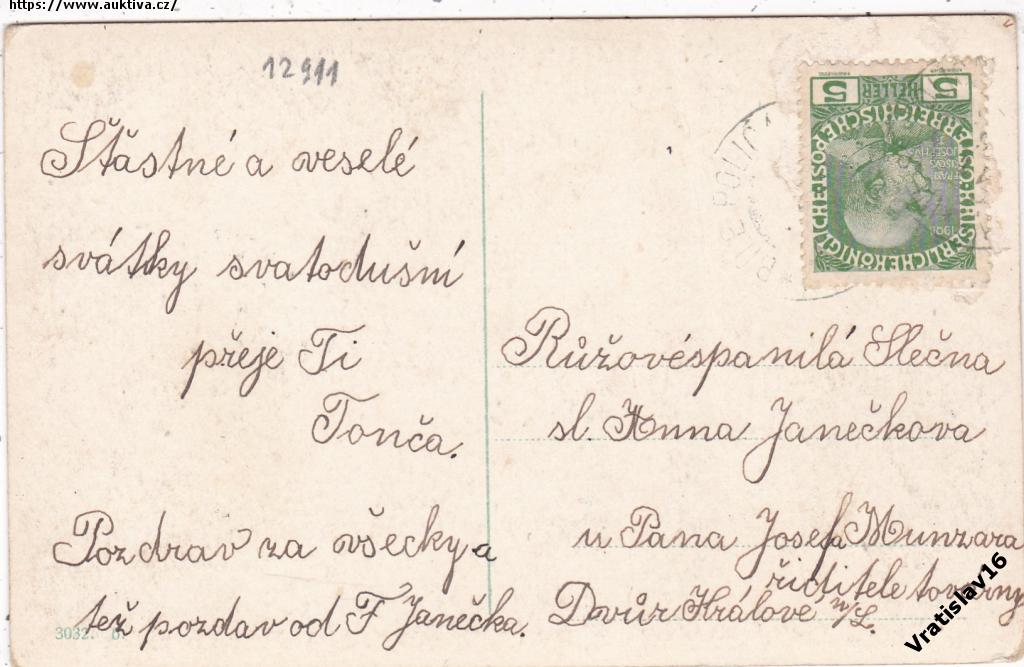 https://www.auktiva.cz/
12911
Šťastné a veselé
svátky svatodušní
přeje Ti
Tonča.
Pozdrav za všecky a
též pozdav od F Janečka.
3032. D.
5 HELLER 5
KAISERLICHE KÖNIGLICHE ÖSTERREICHISCHE POST
FRAN
CISCVS
JOSEPHVS
1908
BÍLÉ POLIČA
Růžovéspanilá Slečna
sl. Anna Janečkova
u Pana Josefa Munzara
řiditele továrny
Dvůr Králové n/L.
Vratislav16